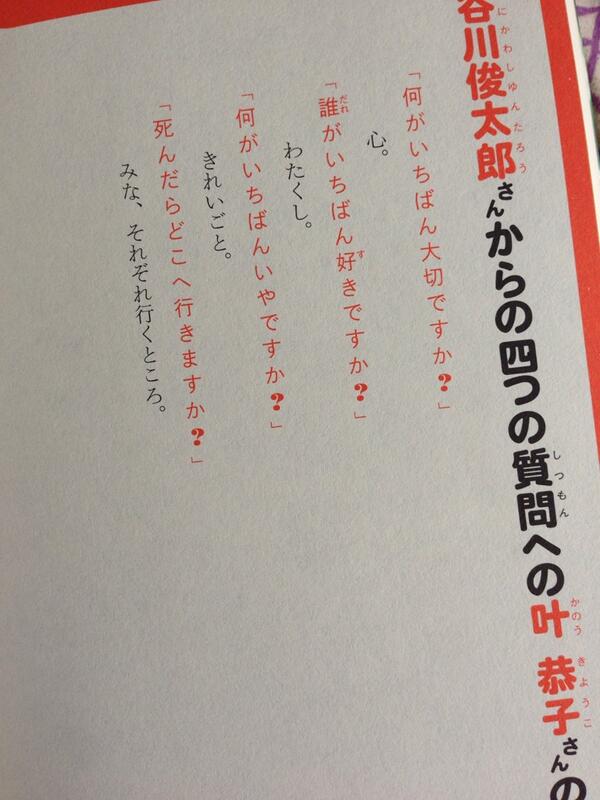 谷川俊太郎さんからの四つの質問への叶 恭子さんの
「何がいちばん大切ですか？」
心。
「誰がいちばん好きですか？」
わたくし。
「何がいちばんいやですか？」
きれいごと。
「死んだらどこへ行きますか？」
みな、それぞれ行くところ。